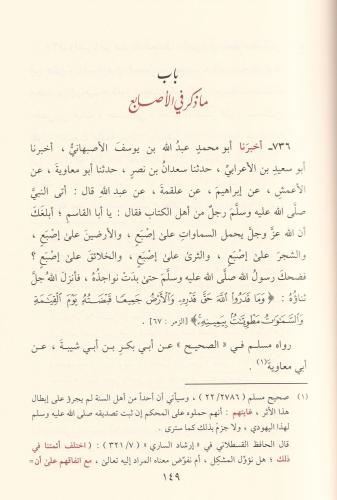 باب
ما ذكر في الأصابع
٧٣٦ـ أخبرَنا أبو محمدٍ عبدُ الله بن يوسفَ الأصبهانيُّ ، أخبرنا
أبو سعيدِ بن الأعرابيِّ ، حدثنا سعدانُ بن نصرٍ ، حدثنا أبو معاويةَ ، عن
الأعمشِ ، عن إبراهيمَ ، عن علقمةَ ، عن عبد الله قال : أتى النبيَّ
صلَّى الله عليه وسلَّمَ رجلٌ من أهل الكتاب فقال : يا أبا القاسم ؛ أبلغَكَ
أن الله عزَّ وجلَّ يحمل السماواتِ علىٰ إصْبَعٍ ، والأرضينَ علىٰ إصْبَعٍ ،
والشجرَ علىٰ إصْبَعٍ ، والثرىٰ علىٰ إصْبَعٍ ، والخلائقَ علىٰ إصْبَعٍ ؟
فضحكَ رسولُ الله صلَّى الله عليه وسلَّم حتىٰ بدَتْ نواجذُهُ ، فأنزلَ اللهُ جلَّ
ثناؤُهُ : ﴿ وَمَا قَدَرُوا۟ ٱللَّهَ حَقَّ قَدْرِهِۦ وَٱلْأَرْضُ جَمِيعًا قَبْضَتُهُۥ يَوْمَ ٱلْقِيَـٰمَةِ
وَٱلسَّمَـٰوَٰتُ مَطْوِيَّـٰتٌۢ بِيَمِينِهِۦ ﴾ [الزمر : ٦٧] .
رواه مسلم في « الصحيح » عن أبي بكرِ بن أبي شيبةَ ، عن
أبي معاويةَ(١) .
(١) صحيح مسلم ( ٢٢/٢٧٨٦ ) ، وسيأتي أن أحداً من أهل السنة لم يجرؤ على إبطال
هذا الأثر ، غايتهم : أنهم حملوه على المحكم إن ثبت تصديقه صلى الله عليه وسلم
لهذا اليهودي ، ولا جزمَ بذلك كما سترى .
قال الحافظ القسطلاني في « إرشاد الساري » ( ٣٢١/٧ ) : ( اختلف أئمتنا في
ذلك ؛ هل نؤوِّل المشكِل ، أم نفوِّض معناه المراد إليه تعالىٰ ، مع اتفاقهم علىٰ أن=
١٤٩